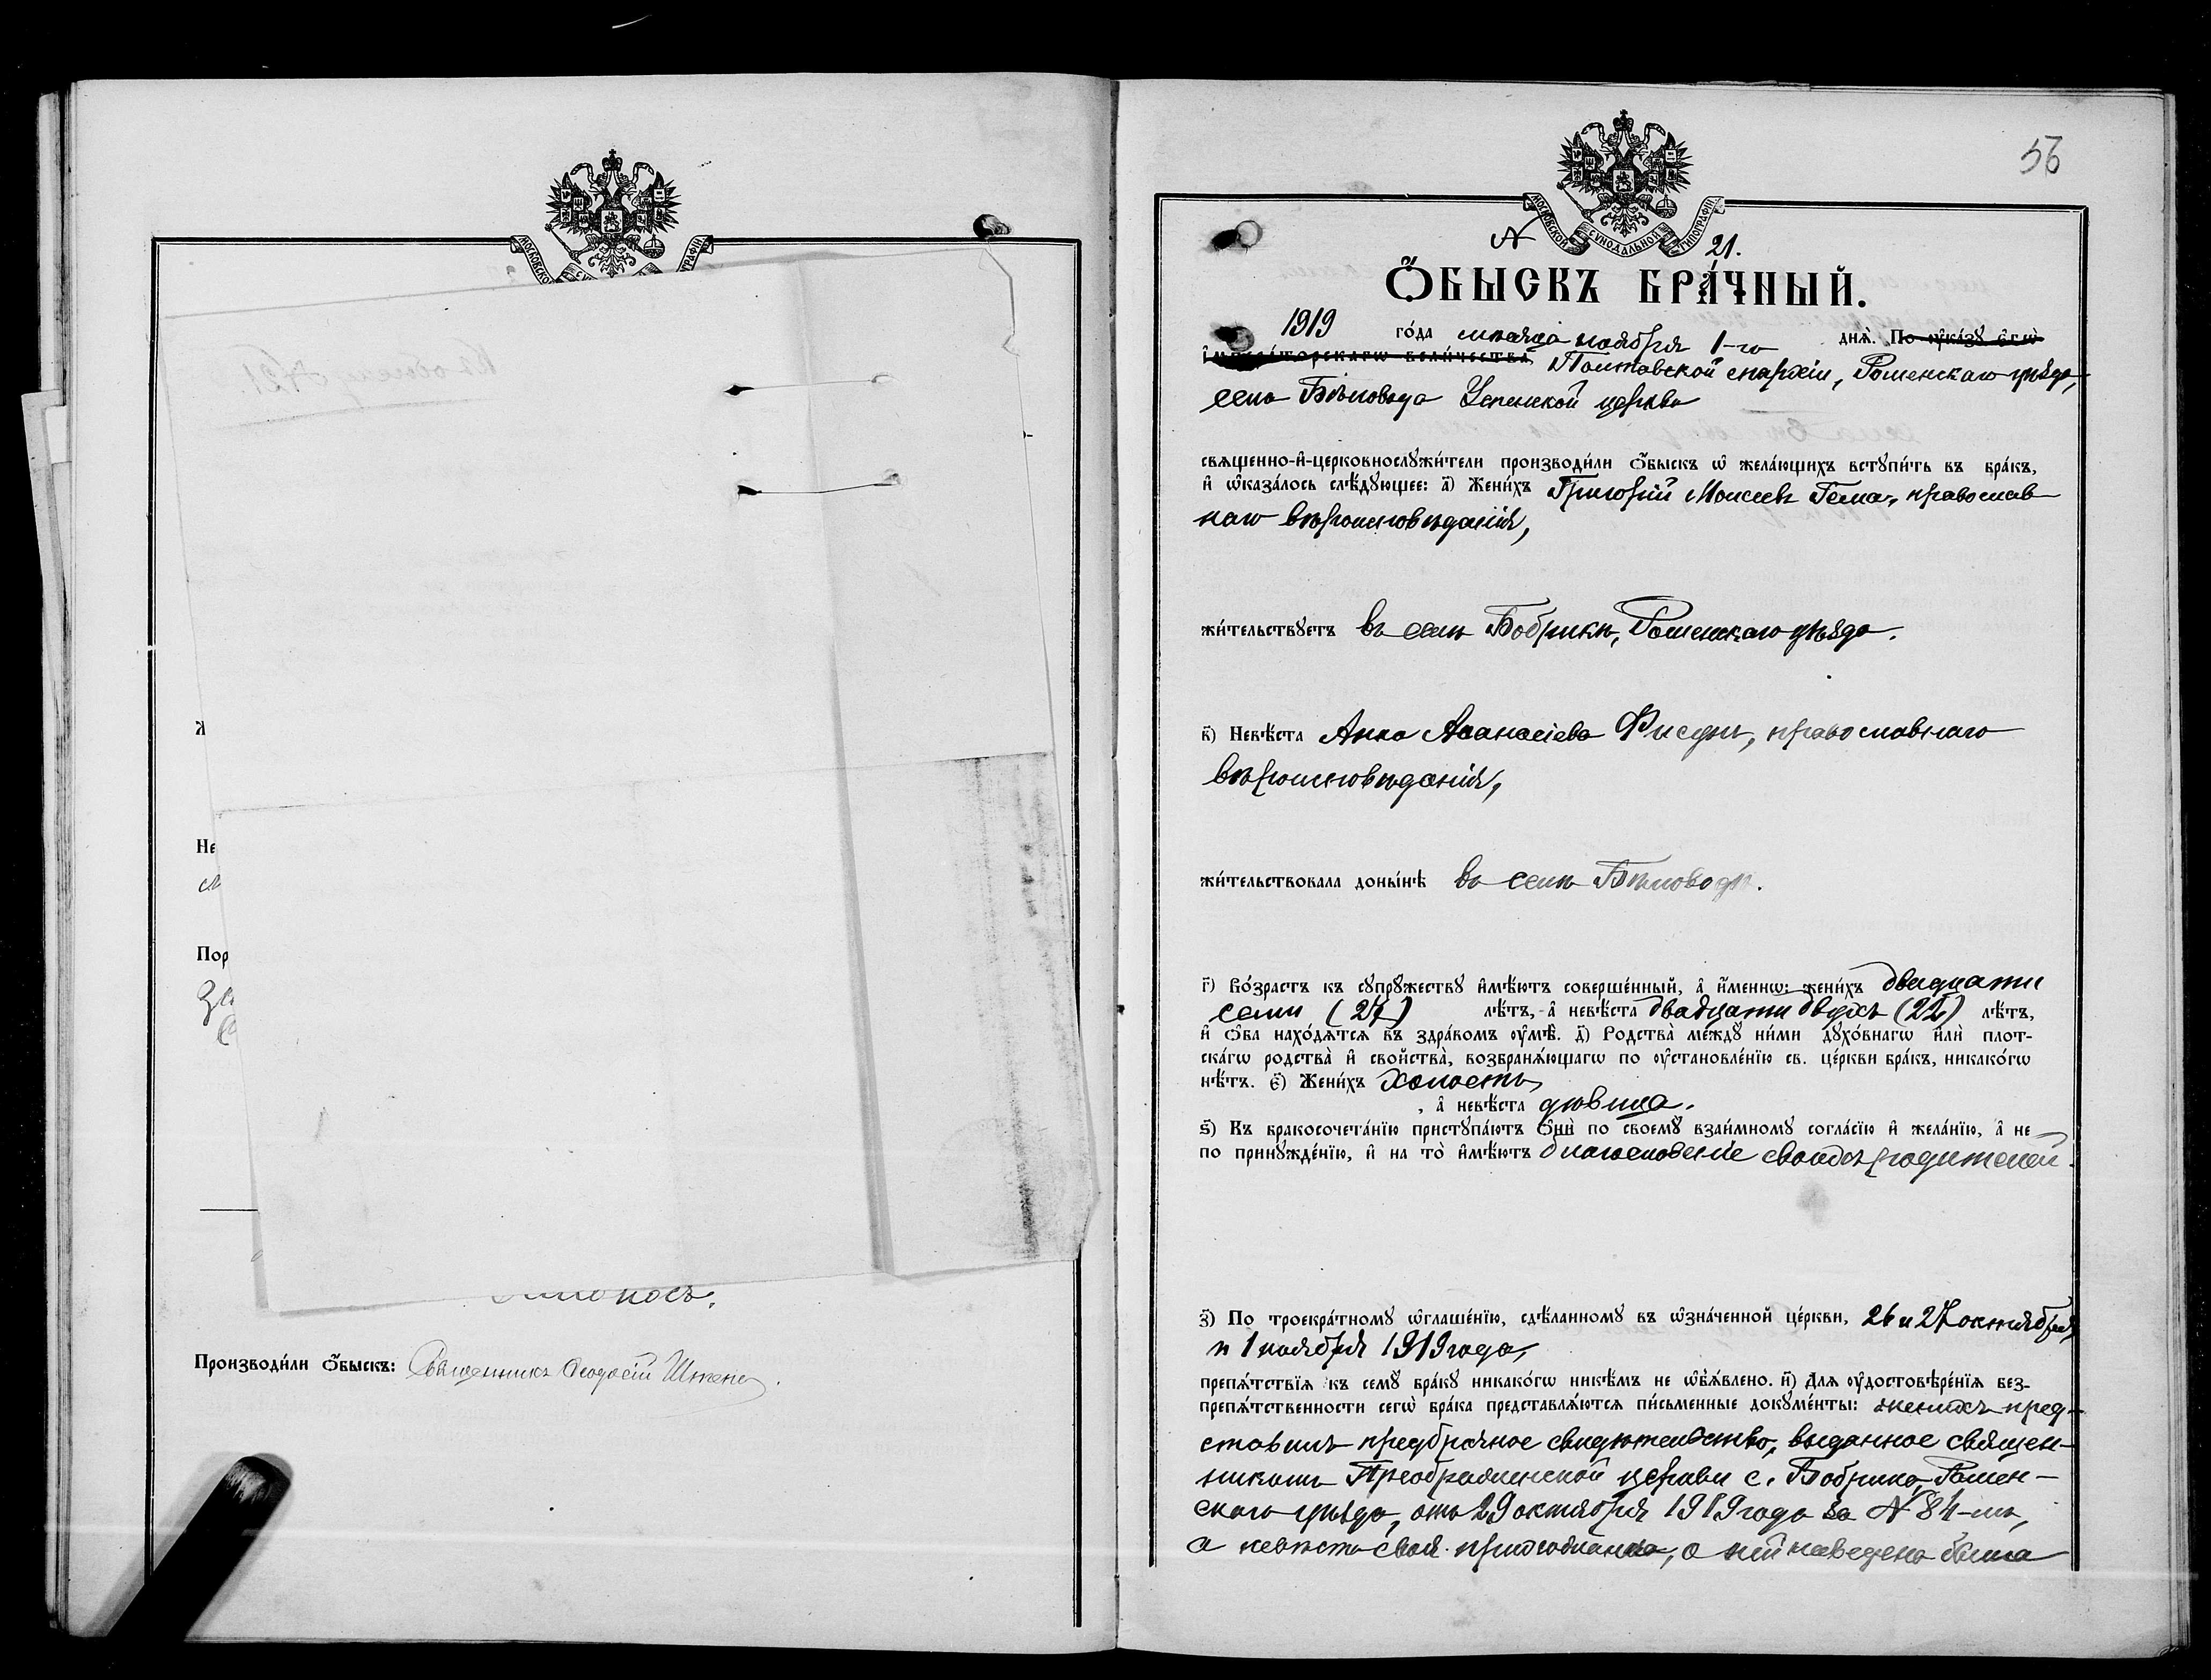 МОСКОВСКОЙ
Къ обыску №21
Не
Пор
Производи́ли ѻ҆́быскъ: Священникъ Ѳеодосій
56
МОСКОВСКОЙ СѴНОДАЛЬНОЙ ТИПОГРАФІИ
№ 21.
Ѻ҆́БЫСКЪ БРА́ЧНЫЙ.
1919 го́да мѣсяца ноября 1-го днѧ̀. По ᲂу҆ка́зꙋ є҆гѡ̀
и҆мпера́торскагѡ вели́чества Полтавской епархіи, Роменскаго уѣзда,
села Бѣловода Успенской церкви
свѧще́нно-и҆-церковнослꙋжи́тели производи́ли ѻ҆́быскъ ѡ҆ жела́ющихъ встꙋпи́ть въ бра́къ,
и҆ ѡ҆каза́лось слѣ́дꙋющее: а҃) Жени́хъ Григорій Моисеевъ Гема, православ-
наго вѣроисповѣданія,
жи́тельствꙋетъ въ селѣ Бобрикѣ, Роменскаго уѣзда.
в҃) Невѣ́ста Анна Аѳанасіева Фисунъ, православнаго
вѣроисповѣданія,
жи́тельствовала доны́нѣ въ селѣ Бѣловодѣ.
г҃) Во́зрастъ къ сꙋпрꙋ́жествꙋ и҆мѣ́ютъ соверше́нный, а҆ и҆́меннѡ: жени́хъ двадцати
семи (27) лѣ́тъ, а҆ невѣ́ста двадцати двухъ (22) лѣ́тъ,
и҆ ѻ҆́ба нахо́дѧтсѧ въ здра́вомъ ᲂу҆мѣ̀. д҃) Родства̀ ме́ждꙋ ни́ми дꙋхо́внагѡ и҆лѝ плот-
ска́гѡ родства̀ и҆ свойства̀, возбранѧ́ющагѡ по ᲂу҆становле́нїю св. це́ркви бра́къ, никако́гѡ
нѣ́тъ. є҃) Жени́хъ холостъ,
, а҆ невѣ́ста дѣвица.
ѕ҃) Къ бракосочета́нїю пристꙋпа́ютъ ѻ҆нѝ по своемꙋ̀ взаи́мномꙋ согла́сїю и҆ жела́нїю, а҆ не
по принꙋжде́нїю, и҆ на то̀ и҆мѣ́ютъ благословеніе своихъ родителей.
з҃) По троекра́тномꙋ ѡ҆глаше́нїю, сдѣ́ланномꙋ въ ѡ҆зна́ченной це́ркви, 26 и 27 октября
и 1 ноября 1919 года,
препѧ́тствїѧ къ семꙋ̀ бра́кꙋ никако́гѡ никѣ́мъ не ѡ҆б̾ѧ́влено. и҃) Длѧ ᲂу҆достовѣре́нїѧ без-
препѧ́тственности сегѡ̀ бра́ка представлѧ́ютсѧ пи́сьменные докꙋме́нты: женихъ пред-
ставилъ предбрачное свидѣтельство, выданное священ-
никомъ Преображенской церкви с. Бобрика, Ромен-
скаго уѣзда, отъ 29 октября 1919 года за № 84-мъ,
а невѣста своя прихожанка, о ней наведена была